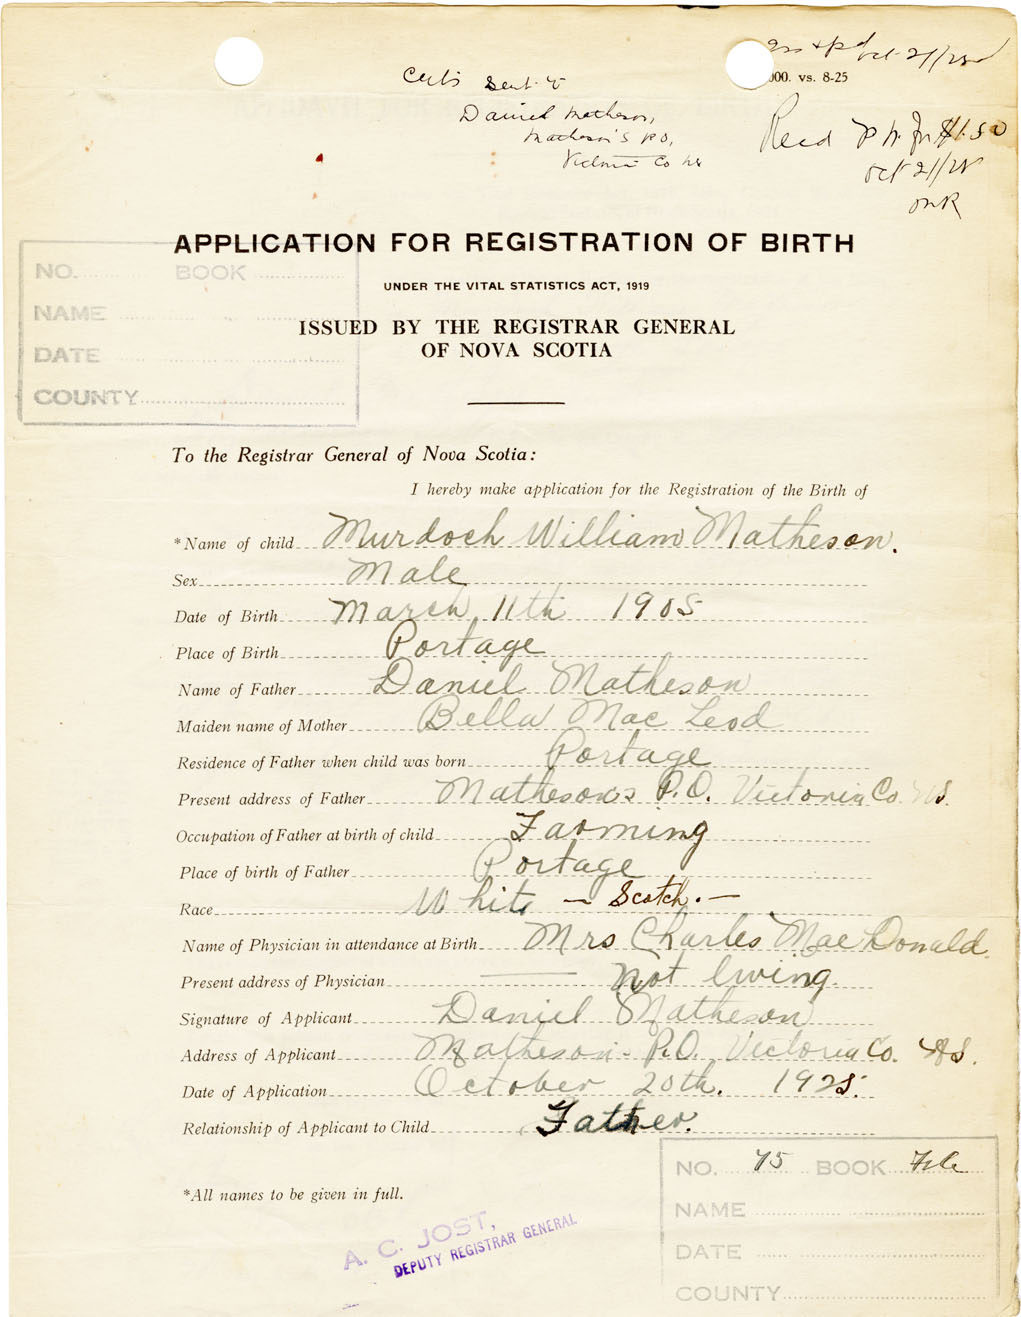 Oct 21/25
000. vs. 8-25
Certs Sent to
Daniel Matheson,
Matheson's P.O,
Victoria Co NS
Recd P.N. for $1.50
Oct 21/25
APPLICATION FOR REGISTRATION OF BIRTH
UNDER THE VITAL STATISTICS ACT, 1919
ISSUED BY THE REGISTRAR GENERAL
OF NOVA SCOTIA
NO. BOOK
NAME
DATE
COUNTY
To the Registrar General of Nova Scotia:
I hereby make application for the Registration of the Birth of
*Name of child Murdoch William Matheson.
Sex Male
Date of Birth March 11th 1905
Place of Birth Portage
Name of Father Daniel Matheson
Maiden name of Mother Bella Mac Leod
Residence of Father when child was born Portage
Present address of Father Mathesons P.O. Victoria Co. NS.
Occupation of Father at birth of child Farming
Place of birth of Father Portage
Race White — Scotch. —
Name of Physician in attendance at Birth Mrs Charles Mac Donald.
Present address of Physician —— Not living.
Signature of Applicant Daniel Matheson
Address of Applicant Matheson. P.O. Victoria Co. NS.
Date of Application October 20th. 1925.
Relationship of Applicant to Child Father.
NO. 75 BOOK
NAME
DATE
COUNTY
*All names to be given in full.
A. C. JOST,
DEPUTY REGISTRAR GENERAL